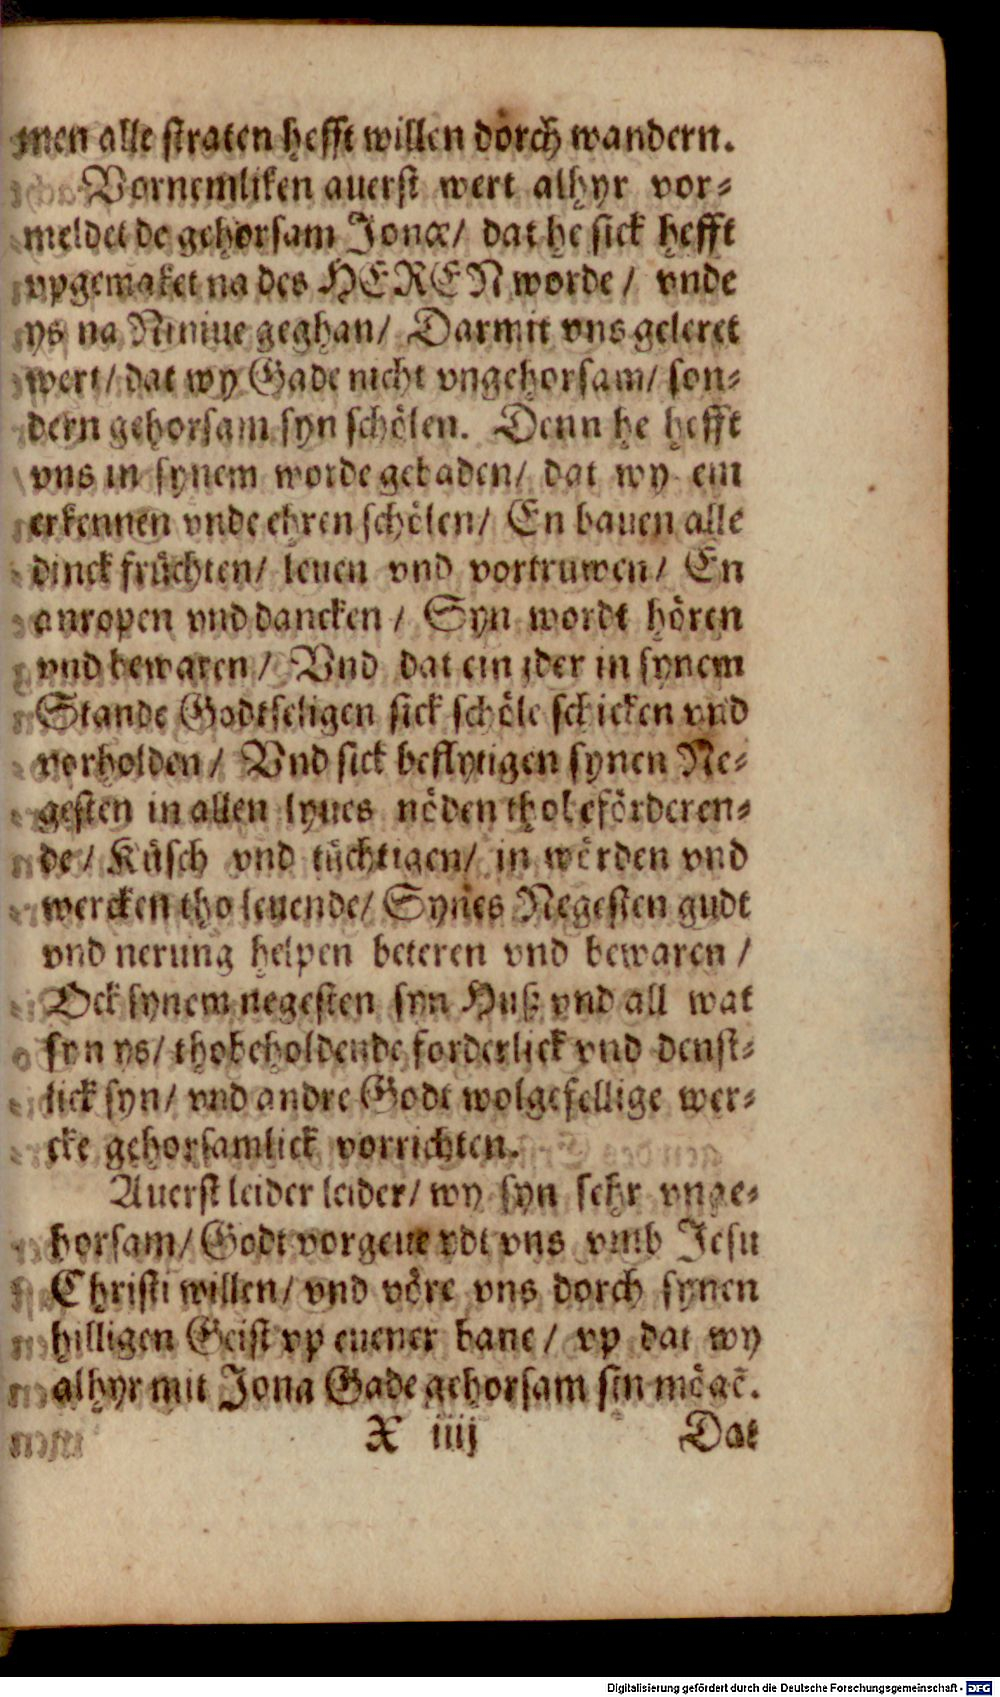 men alle straten hefft willen dörch wandern.
Vornemliken auerst wert alhyr vor⸗
meldet de gehorsam Jonæ/ dat he sick hefft
vpgemaket na des HEREN worde / vnde
ys na Niniue geghan/ Darmit vns geleret
wert/ dat wy Gade nicht vngehorsam/ son⸗
dern gehorsam syn schölen. Denn he hefft
vns in synem worde gebaden/ dat wy em
erkennen vnde ehren schölen/ En bauen alle
dinck früchten/ leuen vnd vortruwen/ En
anropen vnd dancken / Syn wordt hören
vnd bewaren / Vnd dat ein ider in synem
Stande Godtseligen sick schöle schicken vnd
vorholden / Vnd sick beflytigen synen Ne⸗
gesten in allen lyues nöden tho beförderen⸗
de / Küsch vnd tüchtigen/ in wörden vnd
wercken tho leuende/ Synes Negesten gudt
vnd nerung helpen beteren vnd bewaren /
Ock synem negesten syn Huß vnd all wat
syn ys/ thobeholdende forderlick vnd denst⸗
lick syn/ vnd andre Godt wolgefellige wer⸗
cke gehorsamlick vorrichten.
Auerst leider leider/ wy syn sehr vnge⸗
horsam/ Godt vorgeue ydt vns vmb Jesu
Christi willen/ vnd vöre vns dorch synen
hilligen Geist vp euener bane / vp dat wy
alhyr mit Jona Gade gehorsam sin mögē.
X iiij Dat
Digitalisierung gefördert durch die Deutsche Forschungsgemeinschaft - DFG